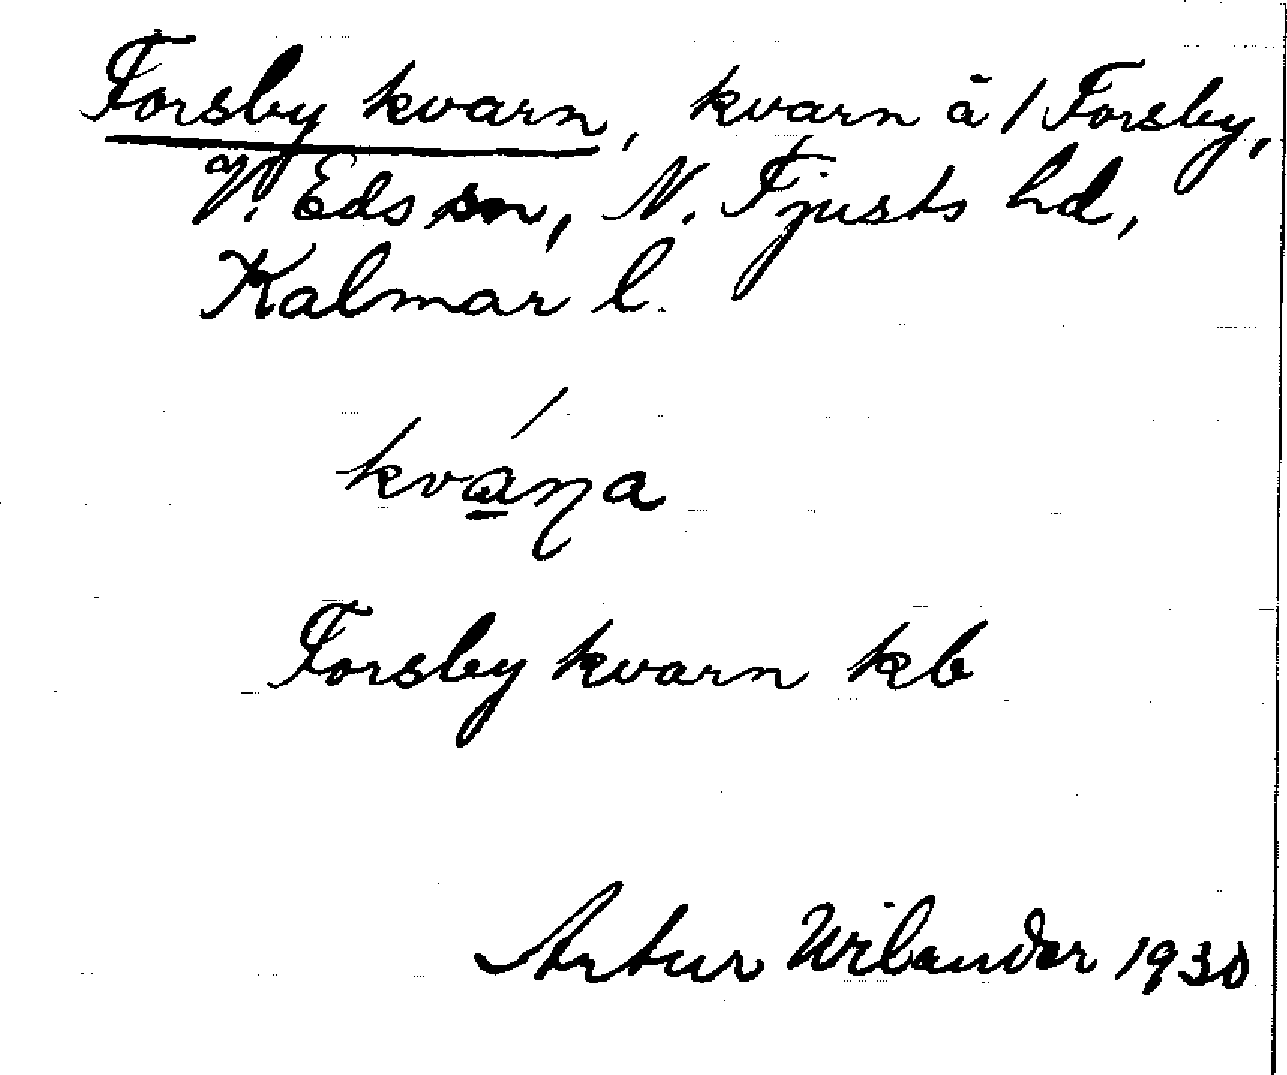 Forsby kvarn, kvarn å 1 Forsby,
V. Eds sn, N. Tjusts hd,
Kalmar l.
kvá̱ŋa
Forsby kvarn kb
Artur Wilander 1930